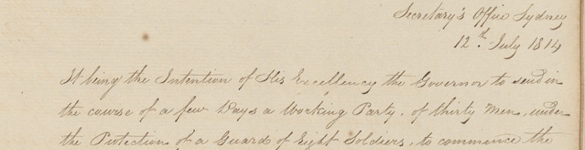 Secretary's Office Sydney
12.th July 1814
It being the Intention of His Excellency the Governor to send in
the course of a few Days a Working Party, of thirty Men, under
the Protection of a Guard of Eight Soldiers, to commence the